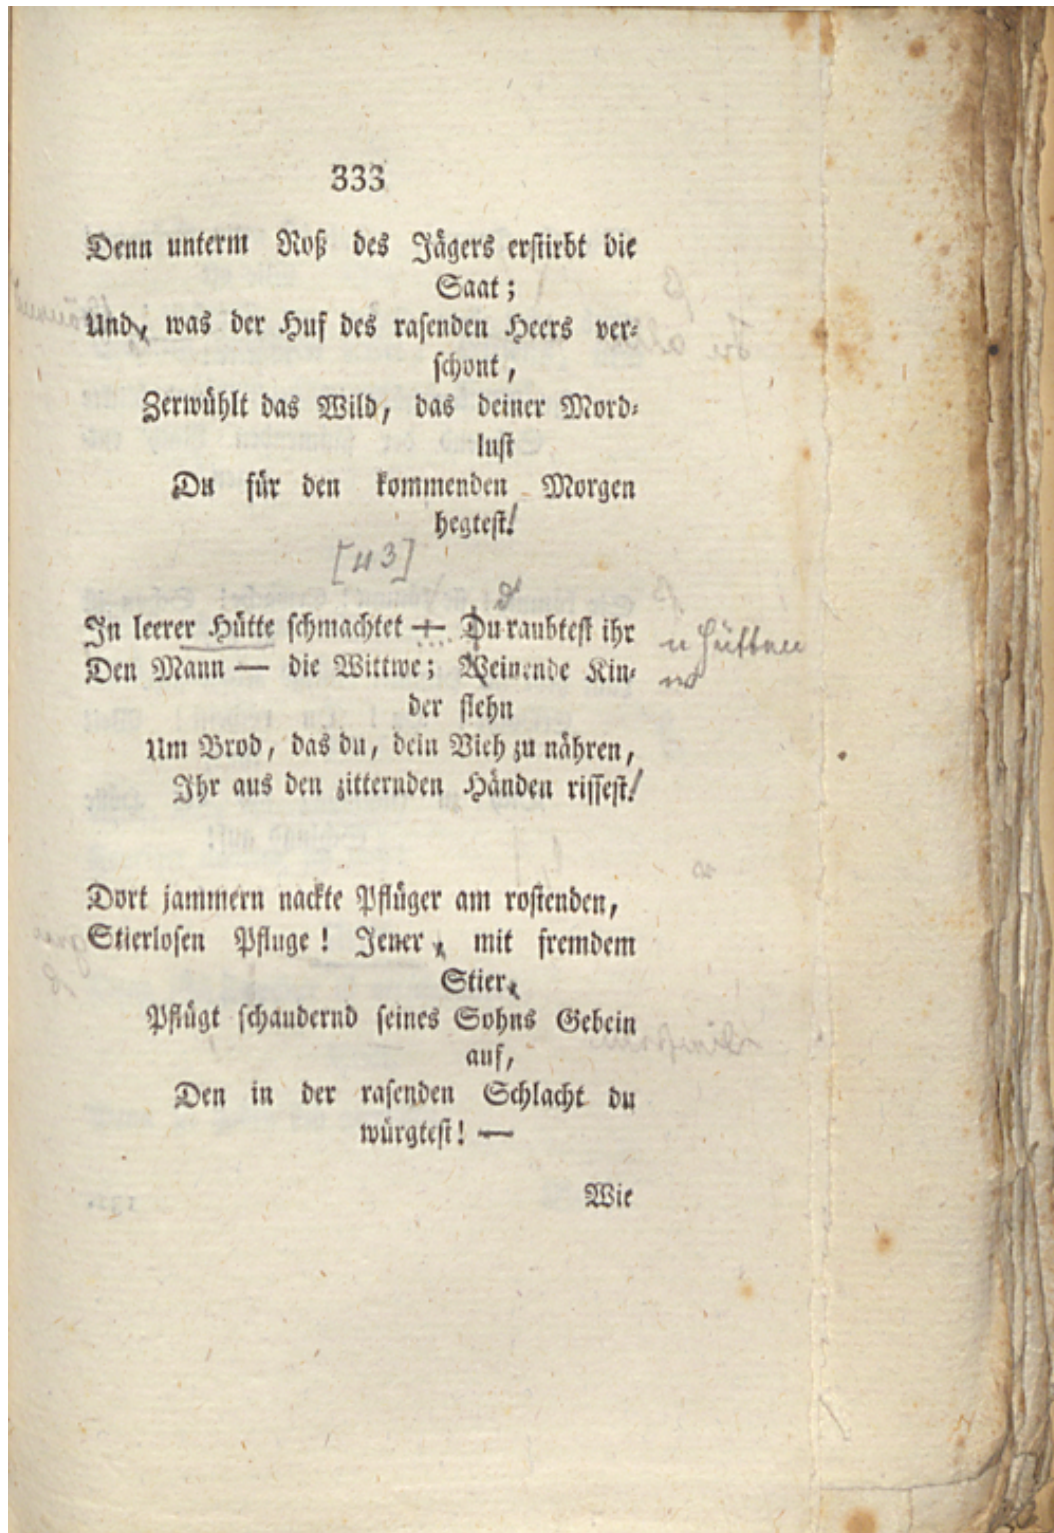 333
Denn unterm Roß des Jägers erstirbt die
Saat;
Und, was der Huf des rasenden Heers ver-
schont,
Zerwühlt das Wild, das deiner Mord-
lust
Du für den kommenden Morgen
hegtest!
[43]
d
In leerer Hütte schmachtet — Du raubtest ihr
n Hütten
Den Mann — die Wittwe; Weinende Kin-
w
der flehn
Um Brod, das du, dein Vieh zu nähren,
Ihr aus den zitternden Händen rissest!
Dort jammern nackte Pflüger am rostenden,
Stierlosen Pfluge! Jener, mit fremdem
Stier,
Pflügt schaudernd seines Sohns Gebein
auf,
Den in der rasenden Schlacht du
würgtest! —
Wie